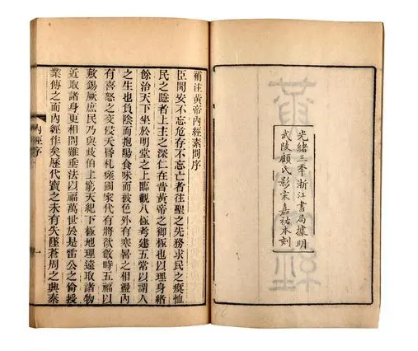 光緒三季浙江書局據明
武陵顧氏影宋嘉祐本刻
補注黃帝內經素問序
臣聞安不忘危存不忘亡者往聖之先務求民之瘼恤
民之隱者上主之深仁在昔黃帝之御極也以理身緒
餘治天下坐於明堂之上臨觀八極考建五常以謂人
之生也負陰而抱陽食味而被色外有寒暑之相盪內
有喜怒之交侵夭昏札瘥國家代有將欲斂時五福以
敷錫厥庶民乃與岐伯上窮天紀下極地理遠取諸物
近取諸身更相問難垂法以福萬世於是雷公之倫授
業傳之而內經作矣歷代寶之未有失墜蒼周之興秦
內經序
一